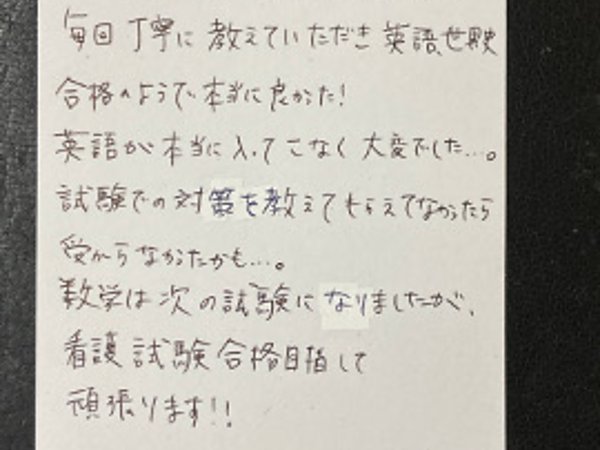 毎回丁寧に教えていただき英語、世界史
合格のようで本当に良かった!
英語が本当に入ってこなく大変でした…。
試験での対策を教えてもらえてなかったら
受からなかったかも…。
数学は次の試験になりましたが、
看護試験合格目指して
頑張ります!!